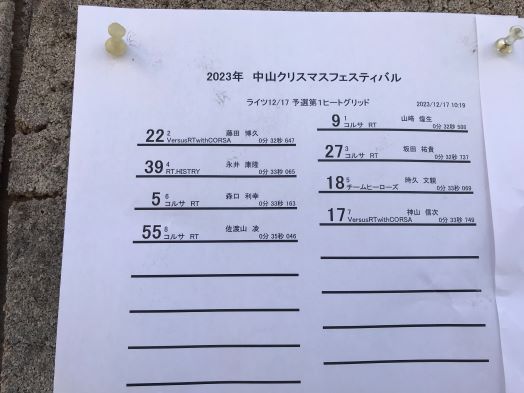 2023年 中山クリスマスフェスティバル
ライツ12/17 予選第1ヒートグリッド
2023/12/17 10:19
9 1 山崎 偉生
コルサ RT 0分 32秒 508
22 2 藤田 博久
VersusRTwithCORSA 0分 32秒 647
27 3 坂田 祐貴
コルサ RT 0分 32秒 737
39 4 永井 康隆
RT.HISTRY 0分 33秒 065
18 5 時久 文親
チームヒーローズ 0分 33秒 069
5 6 森口 利幸
コルサ RT 0分 33秒 163
17 7 神山 信次
VersusRTwithCORSA 0分 33秒 749
55 8 佐渡山 凌
コルサ RT 0分 35秒 046